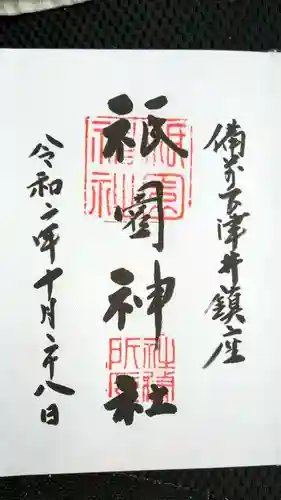 備前下津井鎮座
祇園神社
祇園
神社
社務
所印
令和二年十月二十八日